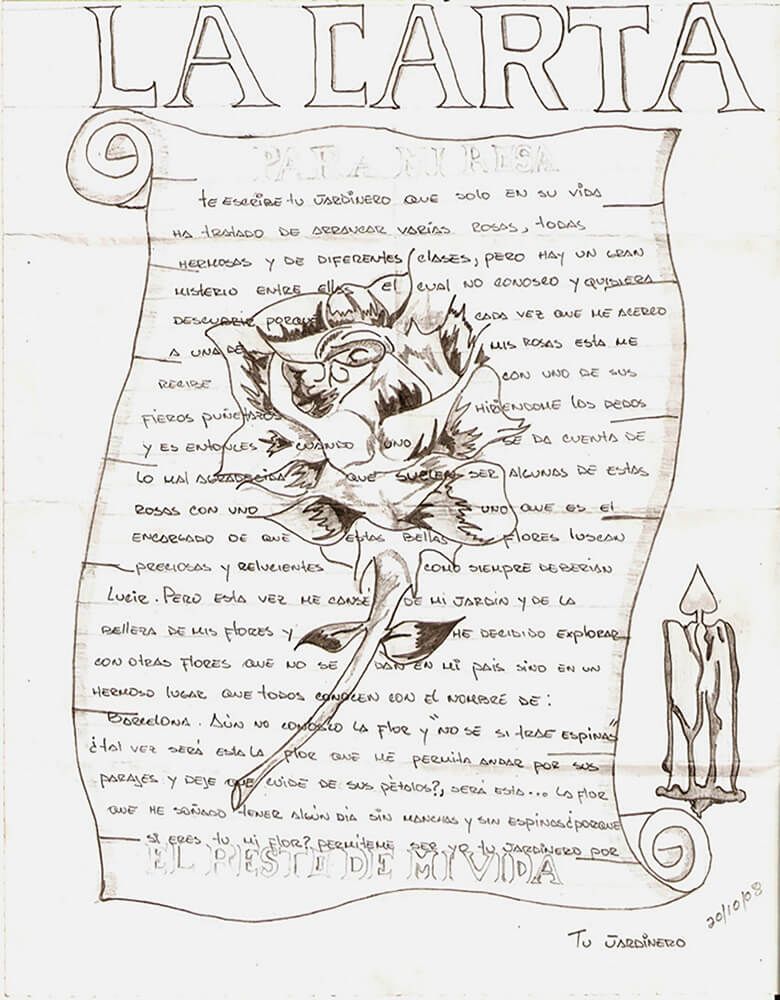 LA CARTA
PARA MI ROSA
te escribe tu Jardinero que solo en su vida
ha tratado de arrancar varias rosas, todas
hermosas y de diferentes clases, pero hay un gran
misterio entre ellas el cual no conosco y quisiera
descubrir porque cada vez que me acerco
a una de mis rosas esta me
recibe con uno de sus
fieros puñetazos hiriendome los dedos
y es entonces cuando uno se da cuenta de
lo mal agradecida que suelen ser algunas de estas
rosas con uno uno que es el
encargado de que estas bellas flores luscan
preciosas y relucientes como siempre deberian
lucir. Pero esta vez me cansé de mi jardin y de la
belleza de mis flores y he decidido explorar
con otras flores que no se dan en mi país sino en un
hermoso lugar que todos conocen con el nombre de:
Barcelona. Aún no conosco la flor y "no se si trae espinas"
¿tal vez será esta la flor que me permita andar por sus
parajes y deje que cuide de sus pètalos?, será esta... la flor
que he soñado tener algún dia sin manchas y sin espinas ¿porque
si eres tu mi flor? permiteme ser yo tu jardinero por
EL RESTO DE MI VIDA
20/10/03
Tu Jardinero